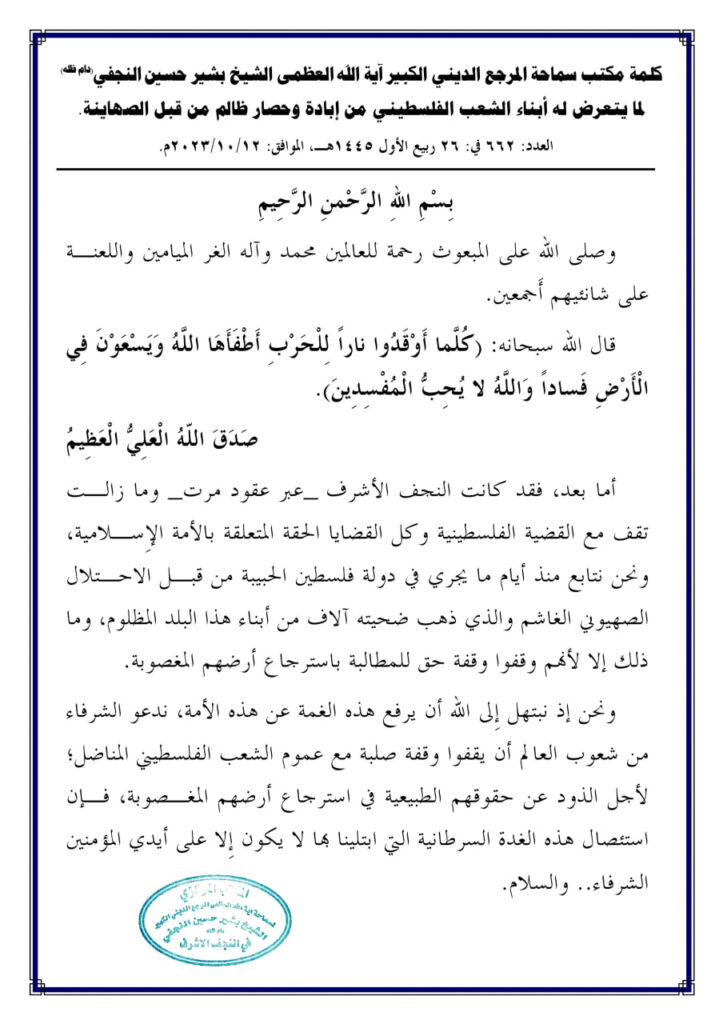 كلمة مكتب سماحة المرجع الديني الكبير آية الله العظمى الشيخ بشير حسين النجفي(دام ظله)
لما يتعرض له أبناء الشعب الفلسطيني من إبادة وحصار ظالم من قبل الصهاينة.
العدد: ٦٦٢ في: ٢٦ ربيع الأول ١٤٤٥هــ، الموافق: ٢٠٢٣/١٠/١٢م.
بِسْمِ اللهِ الرَّحْمنِ الرَّحِيمِ
وصلى الله على المبعوث رحمة للعالمين محمد وآله الغر الميامين واللعنــة
على شانئيهم أَجمعين.
قال الله سبحانه: (كُلَّما أَوْقَدُوا ناراً لِلْحَرْبِ أَطْفَأَهَا اللَّهُ وَيَسْعَوْنَ فِي
الْأَرْضِ فَساداً وَاللَّهُ لا يُحِبُّ الْمُفْسِدِينَ).
صَدَقَ اللَّهُ الْعَلِيُّ الْعَظِيمُ
أما بعد، فقد كانت النجف الأشرف _عبر عقود مرت_ وما زالــت
تقف مع القضية الفلسطينية وكل القضايا الحقة المتعلقة بالأمة الإِســلامية،
ونحن نتابع منذ أيام ما يجري في دولة فلسطين الحبيبة من قبــل الاحــتلال
الصهيوني الغاشم والذي ذهب ضحيته آلاف من أبناء هذا البلد المظلوم، وما
ذلك إلا لأنهم وقفوا وقفة حق للمطالبة باسترجاع أرضهم المغصوبة.
ونحن إذ نبتهل إِلى الله أن يرفع هذه الغمة عن هذه الأمة، ندعو الشرفاء
من شعوب العالم أن يقفوا وقفة صلبة مع عموم الشعب الفلسطيني المناضل؛
لأجل الذود عن حقوقهم الطبيعية في استرجاع أرضهم المغــصوبة، فــإن
استئصال هذه الغدة السرطانية التي ابتلينا بها لا يكون إِلا على أيدي المؤمنين
الشرفاء.. والسلام.
المكتب المركزي
لسماحة آية الله العظمى المرجع الديني الكبير
الشيخ بشير حسين النجفي
دام ظله
في النجف الاشرف